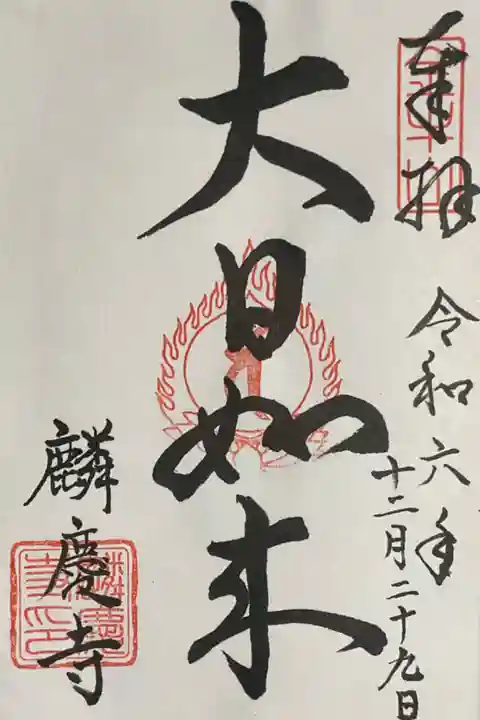 奉拝
令和六年
十二月二十九日
大日如来
麟慶寺